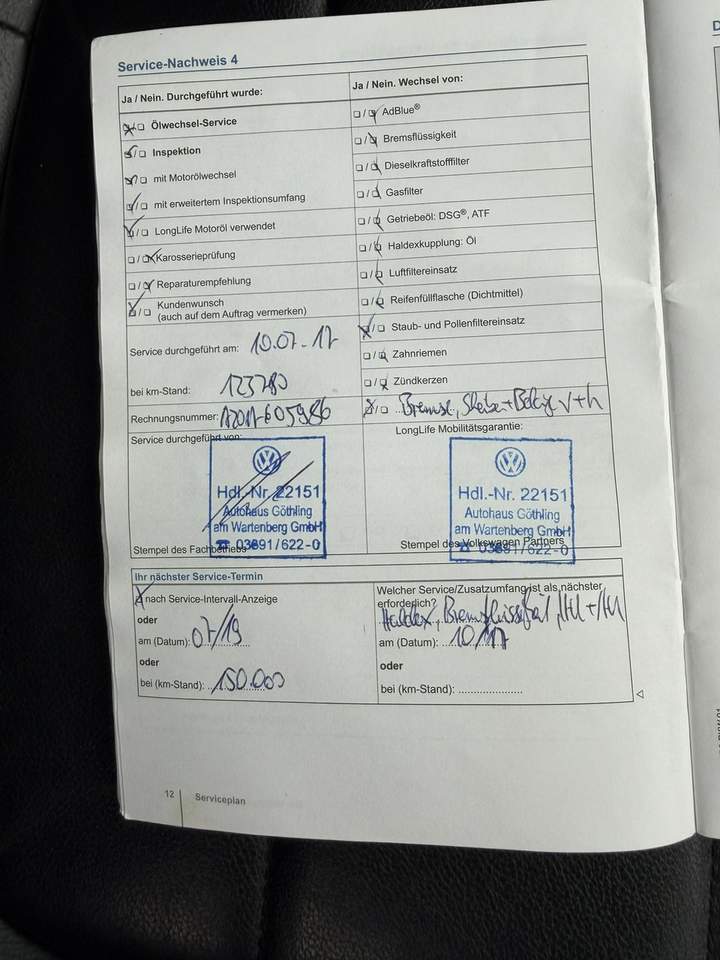 Service-Nachweis 4
Ja / Nein. Durchgeführt wurde:
Ja / Nein. Wechsel von:
Ölwechsel-Service
Inspektion
mit Motorölwechsel
mit erweitertem Inspektionsumfang
LongLife Motoröl verwendet
Karosserieprüfung
Reparaturempfehlung
Kundenwunsch
(auch auf dem Auftrag vermerken)
AdBlue®
Bremsflüssigkeit
Dieselkraftstofffilter
Gasfilter
Getriebeöl: DSG®, ATF
Haldexkupplung: Öl
Luftfiltereinsatz
Reifenfüllflasche (Dichtmittel)
Staub- und Pollenfiltereinsatz
Zahnriemen
Zündkerzen
Bremse, v+h
Service durchgeführt am: 10.07-17
bei km-Stand: 123780
Rechnungsnummer:
Service durchgeführt von:
Hdl.-Nr. 22151
Autohaus Göthling
am Wartenberg GmbH
☎ 03691/622-0
Stempel des Fachbetriebs
LongLife Mobilitätsgarantie:
Hdl.-Nr. 22151
Autohaus Göthling
am Wartenberg GmbH
☎ 03691/622-0
Stempel des Volkswagen Partners
Ihr nächster Service-Termin
nach Service-Intervall-Anzeige
oder
am (Datum): 07/19
oder
bei (km-Stand): 150.000
Welcher Service/Zusatzumfang ist als nächster
erforderlich?
Haldex, HU + AU
am (Datum): 10/17
oder
bei (km-Stand):
12
Serviceplan